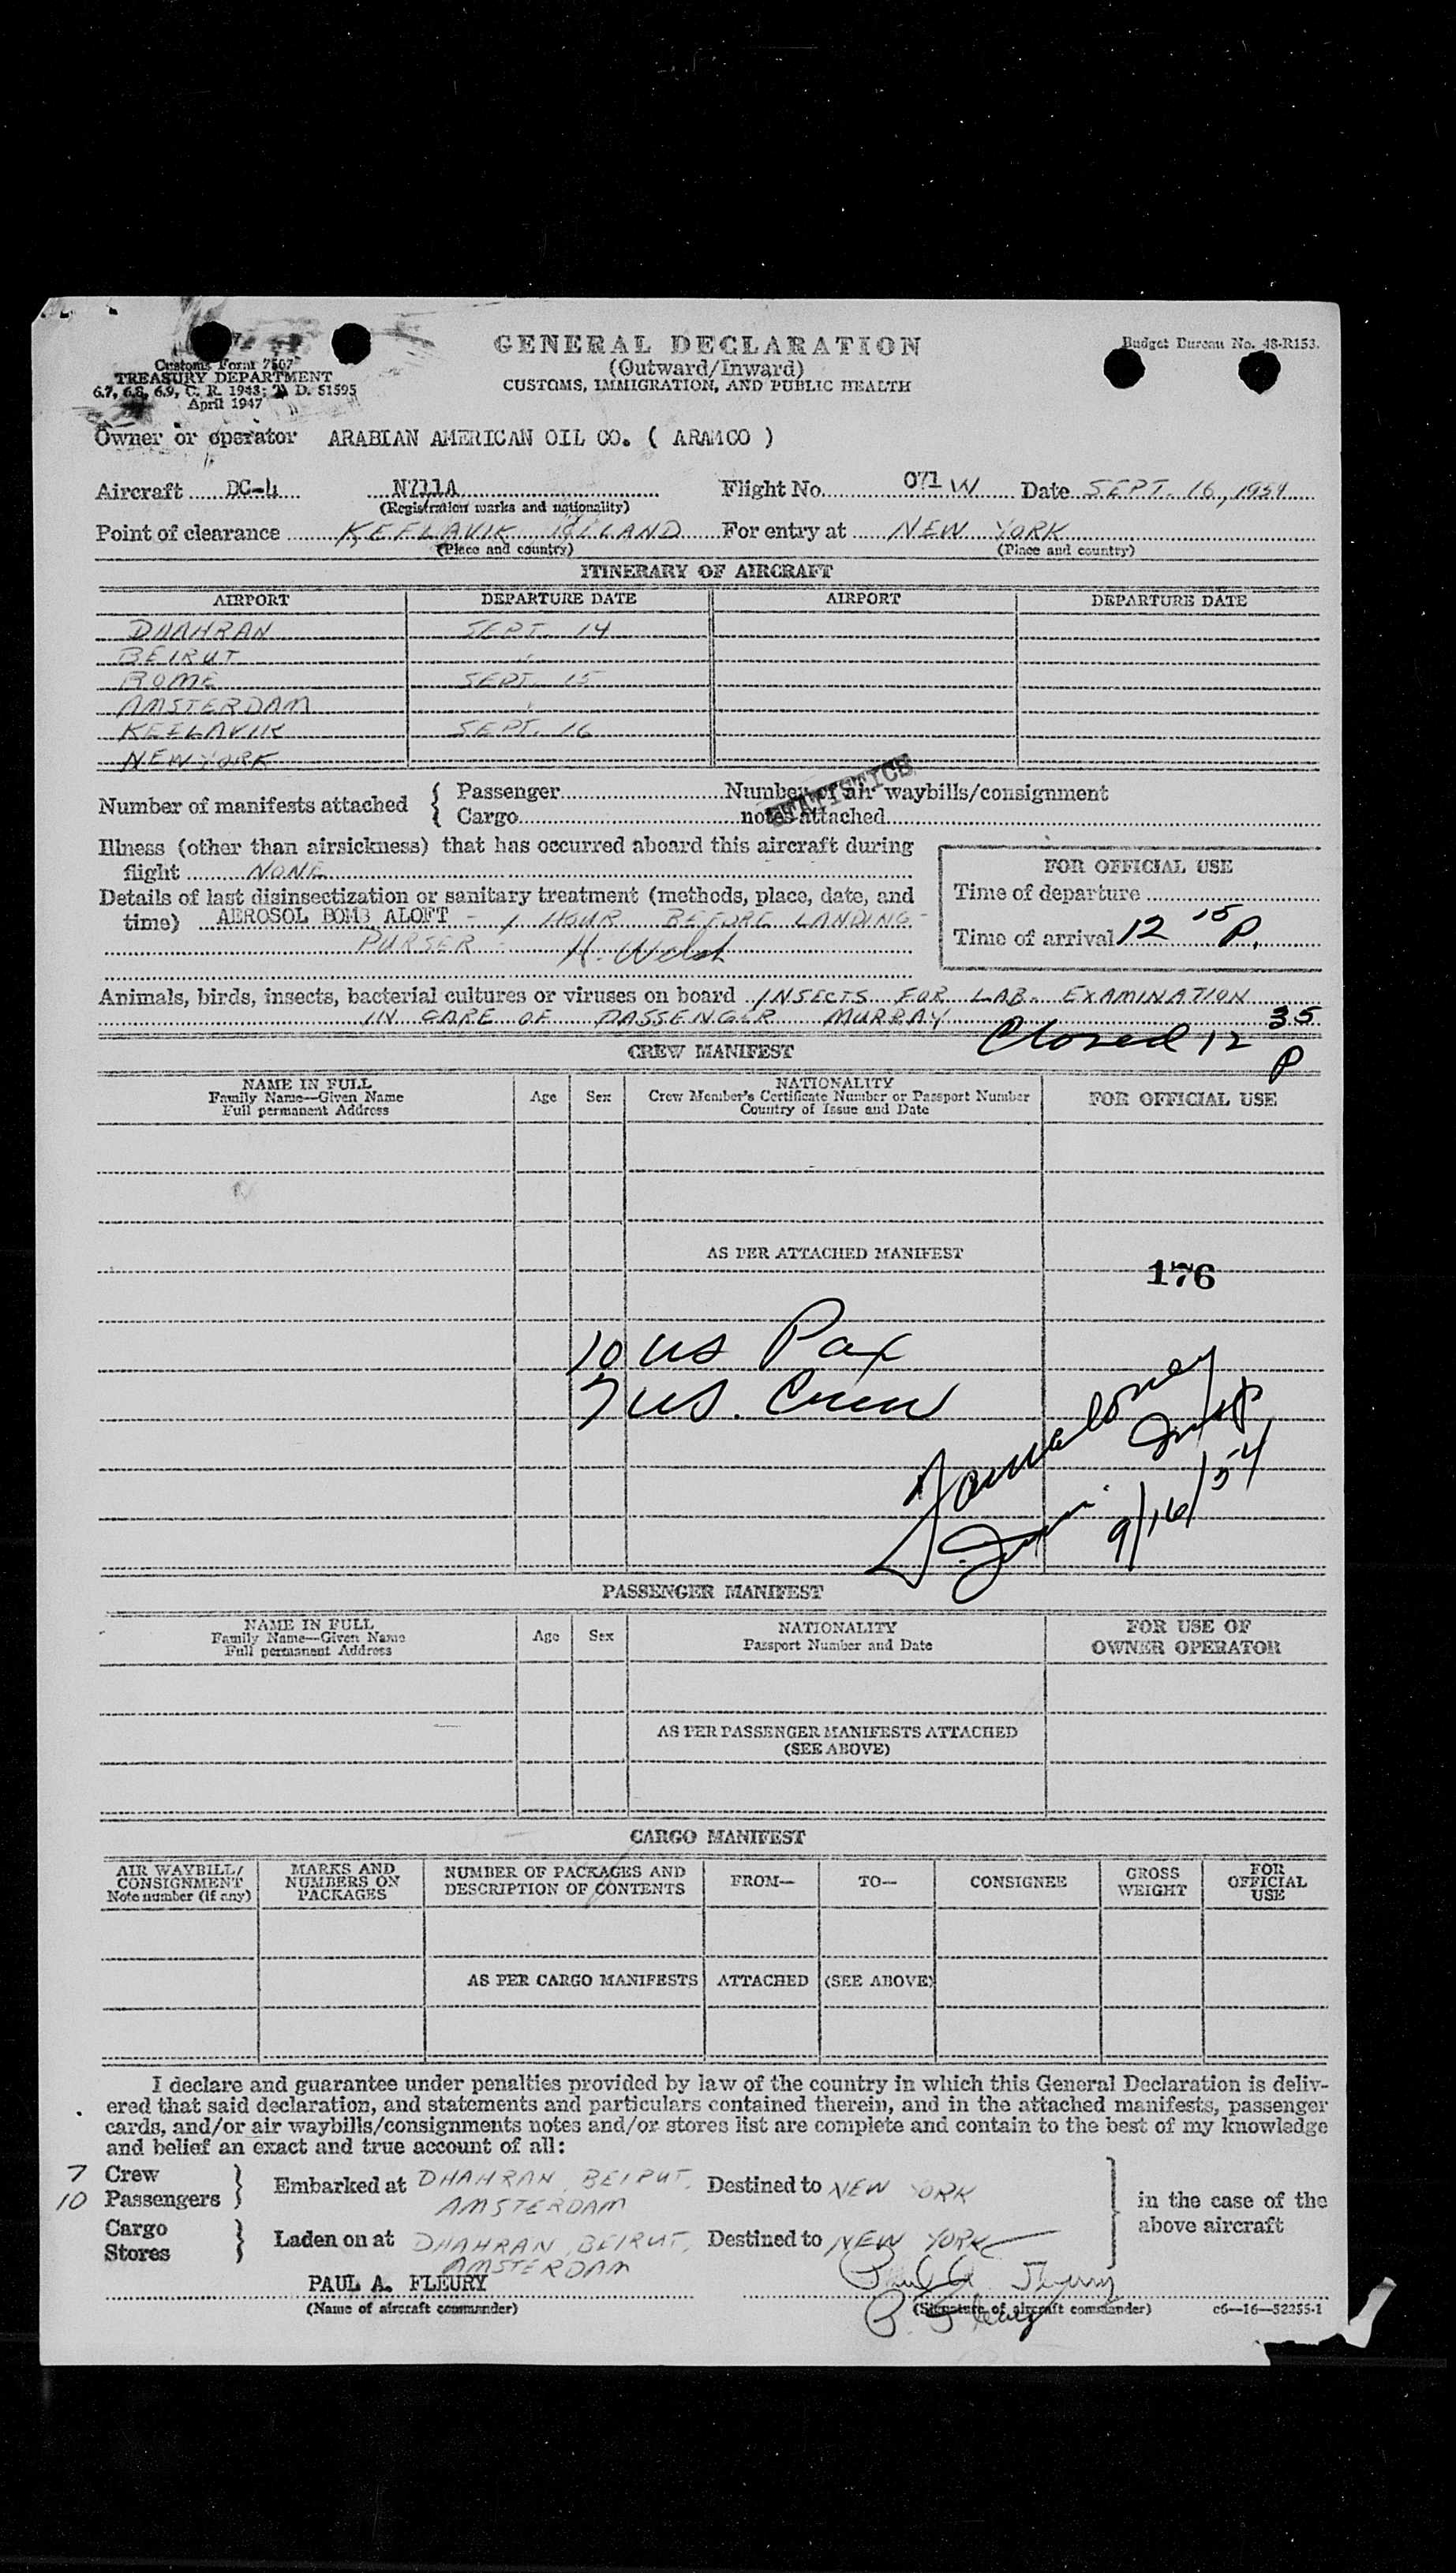 GENERAL DECLARATION
(Outward/Inward)
CUSTOMS, IMMIGRATION, AND PUBLIC HEALTH
Budget Bureau No. 48-R153.
Customs Form 7507
TREASURY DEPARTMENT
6.7, 6.8, 6.9, C. R. 1943; T. D. 51595
April 1947
Owner or operator ARABIAN AMERICAN OIL CO. ( ARAMCO )
Aircraft DC-4 N711A Flight No. 071 W Date SEPT. 16, 1954
(Registration marks and nationality)
Point of clearance KEFLAVIK ICELAND For entry at NEW YORK
(Place and country) (Place and country)
ITINERARY OF AIRCRAFT
AIRPORT DEPARTURE DATE AIRPORT DEPARTURE DATE
DHAHRAN SEPT. 14
BEIRUT "
ROME SEPT. 15
AMSTERDAM "
KEFLAVIK SEPT. 16
NEW YORK
STATISTICS
Number of manifests attached { Passenger Number of air waybills/consignment
Cargo notes attached
Illness (other than airsickness) that has occurred aboard this aircraft during
flight NONE
Details of last disinsectization or sanitary treatment (methods, place, date, and
time) AEROSOL BOMB ALOFT - 1 HOUR BEFORE LANDING -
PURSER - H. Welsh
FOR OFFICIAL USE
Time of departure
Time of arrival 12 15 P.
Animals, birds, insects, bacterial cultures or viruses on board INSECTS FOR LAB. EXAMINATION
IN CARE OF PASSENGER MURRAY
Closed 12 35 P
CREW MANIFEST
NAME IN FULL
Family Name—Given Name
Full permanent Address
Age Sex
NATIONALITY
Crew Member's Certificate Number or Passport Number
Country of Issue and Date
FOR OFFICIAL USE
AS PER ATTACHED MANIFEST
176
10 US Pax
7 US. Crew
9/16/54
PASSENGER MANIFEST
NAME IN FULL
Family Name—Given Name
Full permanent Address
Age Sex
NATIONALITY
Passport Number and Date
FOR USE OF
OWNER OPERATOR
AS PER PASSENGER MANIFESTS ATTACHED
(SEE ABOVE)
CARGO MANIFEST
AIR WAYBILL/
CONSIGNMENT
Note number (if any)
MARKS AND
NUMBERS ON
PACKAGES
NUMBER OF PACKAGES AND
DESCRIPTION OF CONTENTS
FROM— TO— CONSIGNEE
GROSS
WEIGHT
FOR
OFFICIAL
USE
AS PER CARGO MANIFESTS ATTACHED (SEE ABOVE)
I declare and guarantee under penalties provided by law of the country in which this General Declaration is deliv-
ered that said declaration, and statements and particulars contained therein, and in the attached manifests, passenger
cards, and/or air waybills/consignments notes and/or stores list are complete and contain to the best of my knowledge
and belief an exact and true account of all:
7 Crew
10 Passengers } Embarked at DHAHRAN, BEIRUT, AMSTERDAM Destined to NEW YORK
Cargo
Stores } Laden on at DHAHRAN, BEIRUT, AMSTERDAM Destined to NEW YORK
} in the case of the
above aircraft
PAUL A. FLEURY Paul A. Fleury
(Name of aircraft commander) (Signature of aircraft commander) c6—16—52255-1
P. Fleury